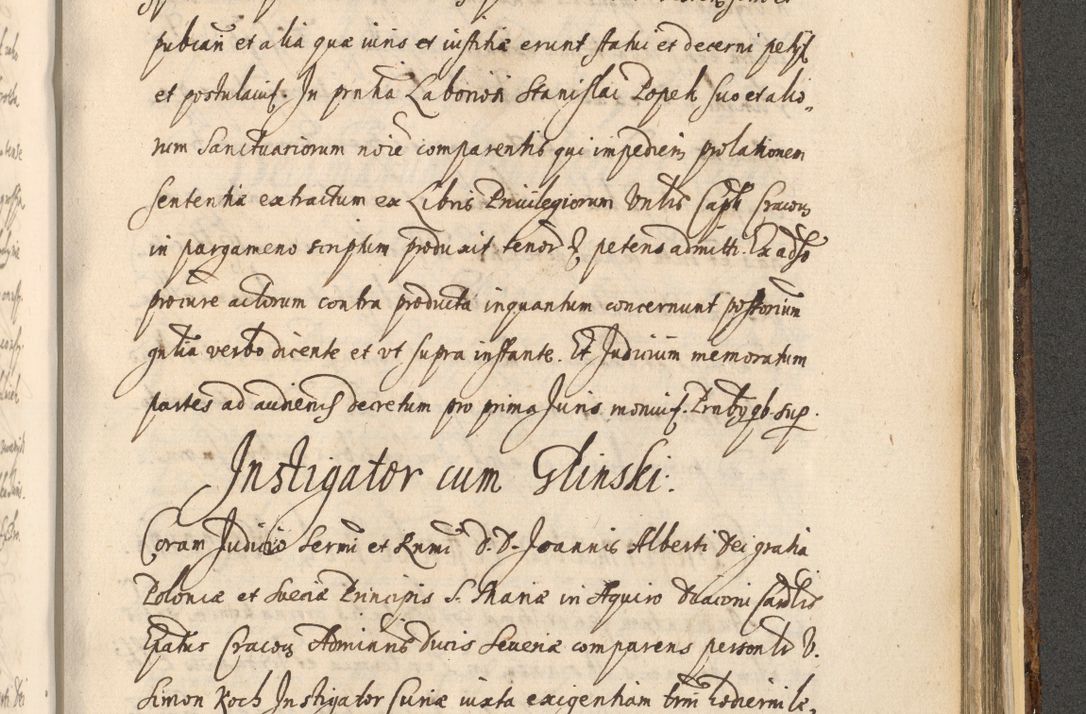 pubican et alia quæ iuris et iustitiæ erunt statui et decerni petyt
et postulavit. In pntia Laboriosi Stanislai Popek suo et alio,
rum Sanctuariorum noie comparentis qui impediens prolationem
sententiæ extractum ex Libris Privilegiorum Vntis Capli Cracov
in pargameno scriptum produxit tenor petens admitti. Ex adso
procure actorum contra producta inquantum concernunt possorium
gntia verbo dicente et vt supra instante. Et Judicium memoratum
partes ad audiend decretum pro prima Juris monuit. Pntbg qb sup.
Instigator cum Glinski.
Coram Judicio Sermi et Rnmi D. D. Joannis Alberti Dei gratia
Poloniæ et Sueciæ Principis S. Mariæ in Aquiro Diaconi Cardlis
Epatus Cracov Adminris Ducis Severiæ comparens personlr V.
Simon Koch Instigator Curiæ iuxta exigentiam trmi hodierni le,